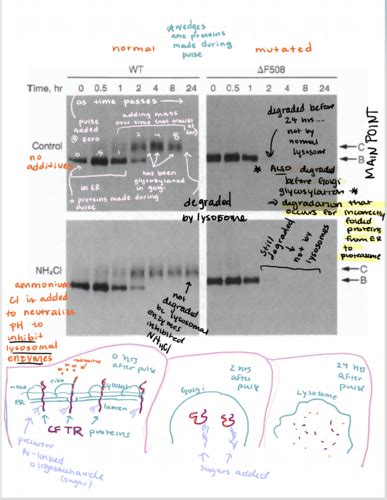 *wedges are proteins made during pulse
normal
mutated
WT
ΔF508
Time, hr 0 0.5 1 2 4 8 24
0 0.5 1 2 4 8 24
as time passes →
pulse added @ zero
adding mass over time (not travel far)
0 .5 1 2 4 8
Control
no additives
in ER
has been glycosylated in golgi
proteins made during pulse
degraded by lysosome
degraded before 24 hrs... not by normal lysosome
* ALSO degraded before Golgi glycosylation *
→ degradation that occurs for incorrectly folded proteins from ER to proteasome
MAIN POINT
C
B
NH₄Cl
ammonium Cl is added to neutralize pH to inhibit lysosomal enzymes
not degraded bc lysosomal enzymes inhibited NH₄Cl
still degraded not by lysosomes
C
B
0 hrs after pulse
radioactive
ribo
cytosol
ER
lumen
CFTR proteins
precursor N-linked oligosaccharide (sugar)
2 hrs after pulse
Golgi
sugars added
24 hrs after pulse
Lysosome